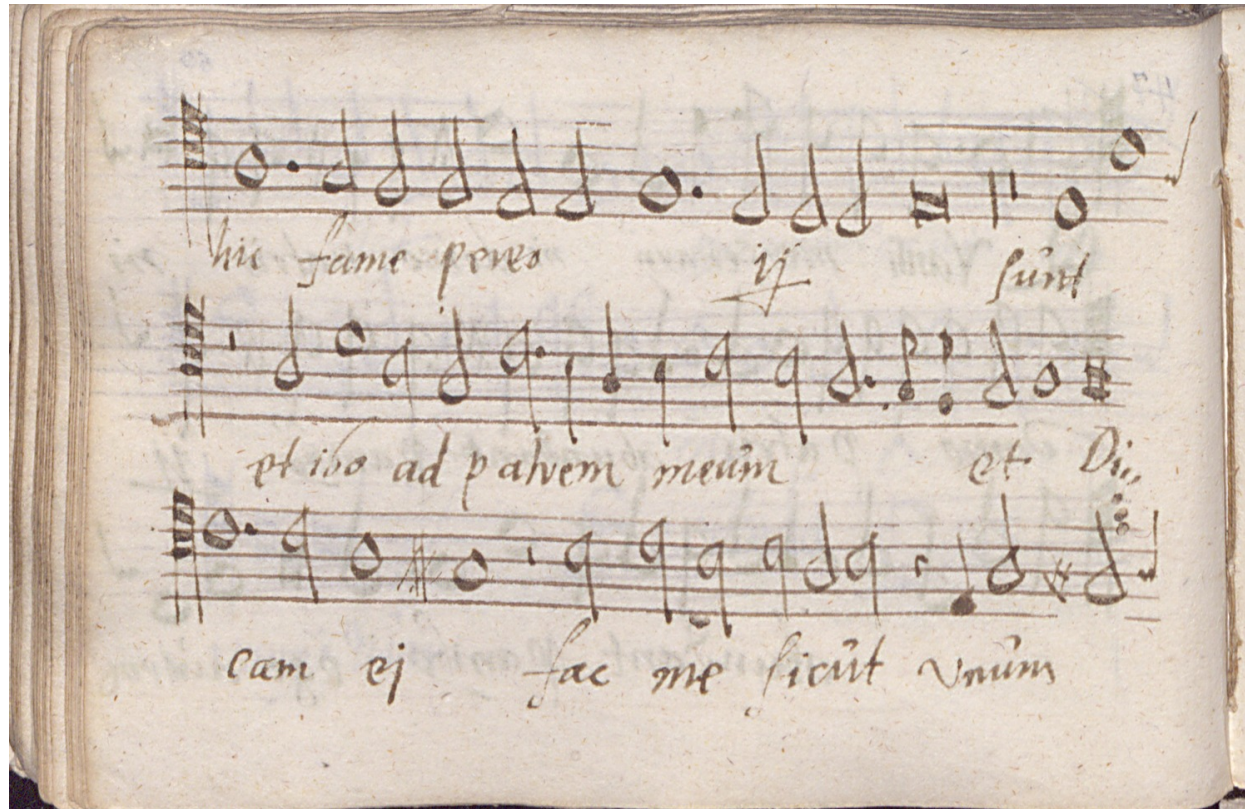 hic fame pereo ij sūnt
et ibo ad patrem meūm et Di,,
cam ej fac me sicūt vnūm